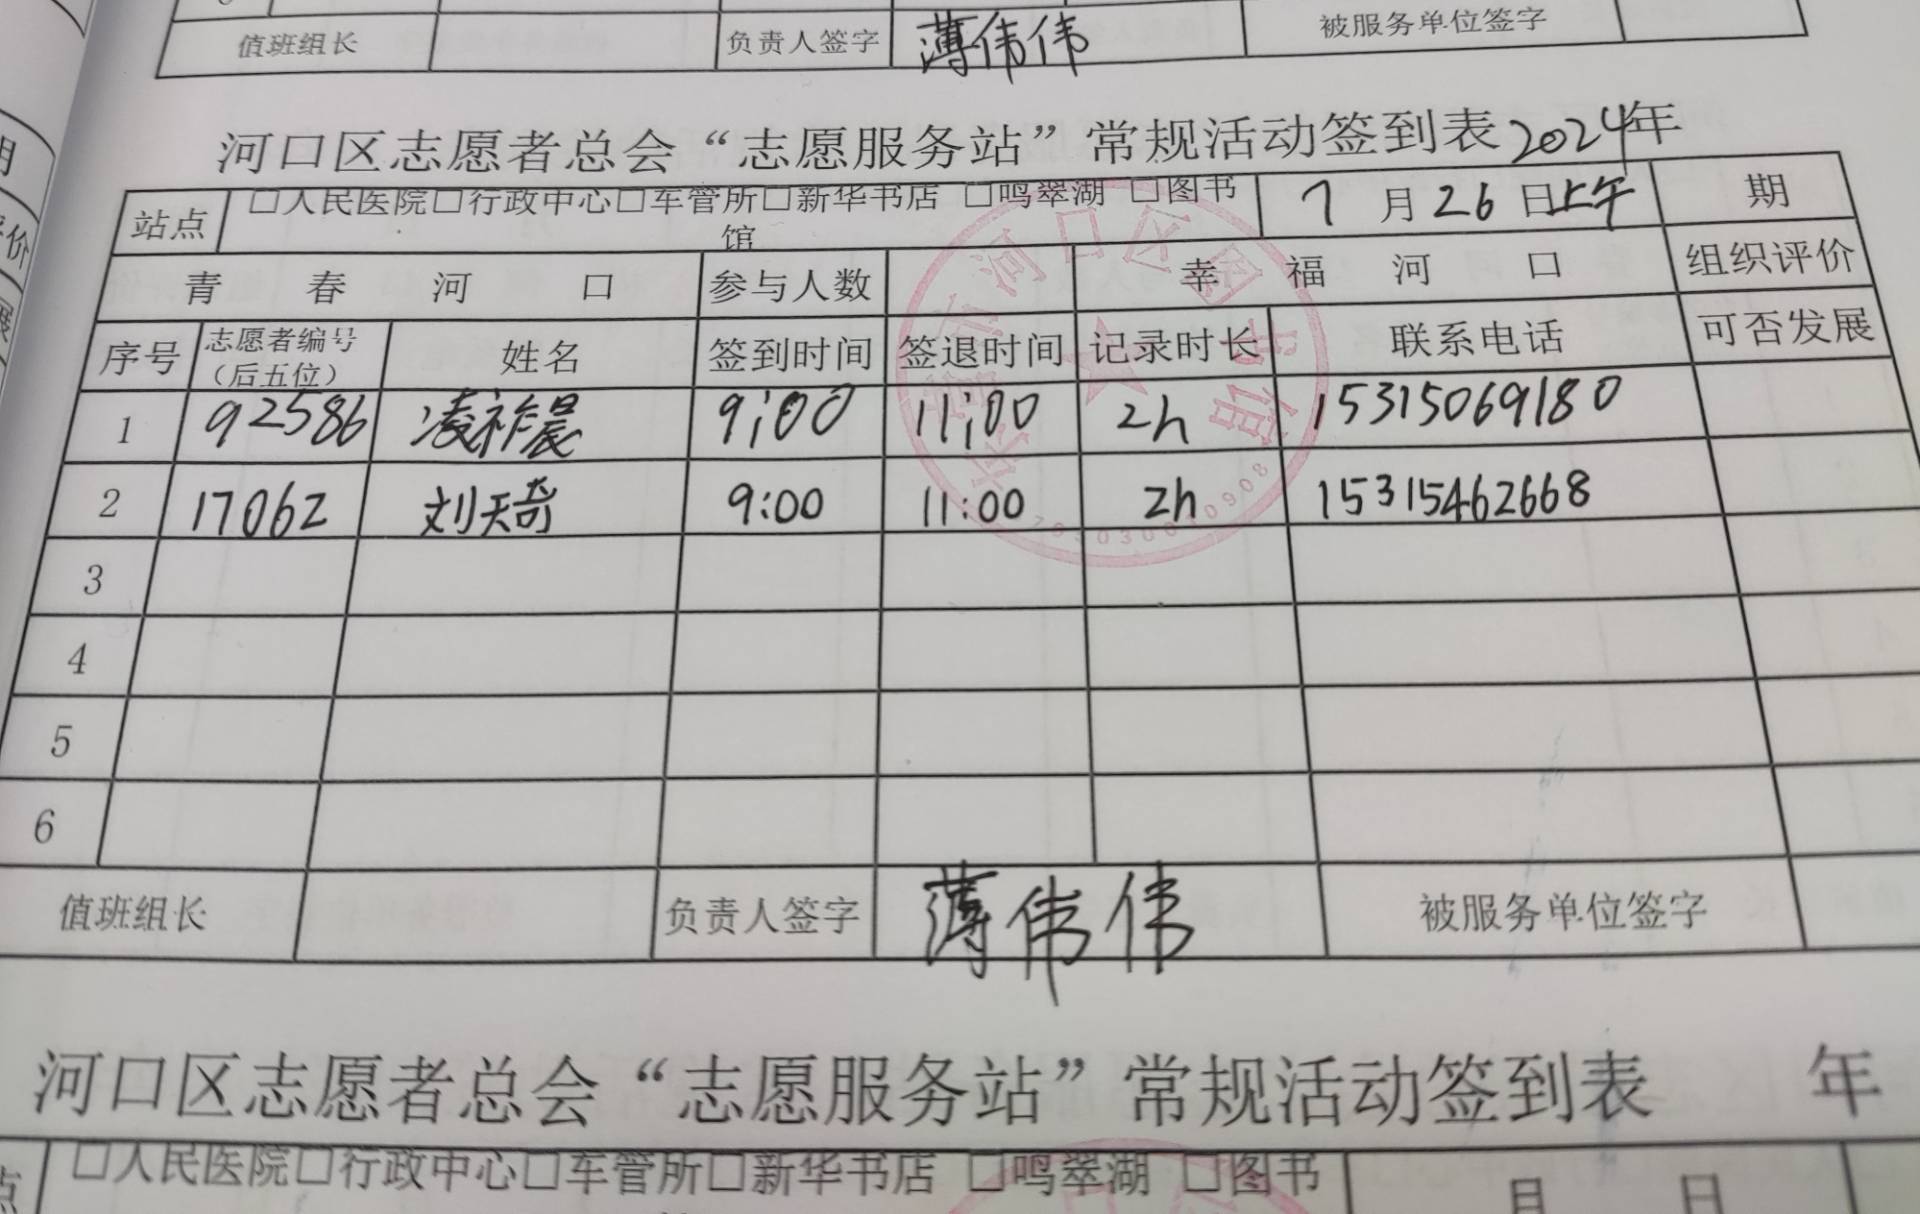 值班组长 负责人签字 薄伟伟 被服务单位签字
河口区志愿者总会“志愿服务站”常规活动签到表2024年
站点 □人民医院□行政中心□车管所□新华书店 □鸣翠湖 □图书馆 7月26日上午 期
青春河口 参与人数 幸福河口 组织评价
序号 志愿者编号（后五位） 姓名 签到时间 签退时间 记录时长 联系电话 可否发展
1 92586 凌祚晨 9:00 11:00 2h 15315069180
2 17062 刘天奇 9:00 11:00 2h 15315462668
3
4
5
6
值班组长 负责人签字 薄伟伟 被服务单位签字
河口区志愿者总会“志愿服务站”常规活动签到表 年
点 □人民医院□行政中心□车管所□新华书店 □鸣翠湖 □图书 月 日